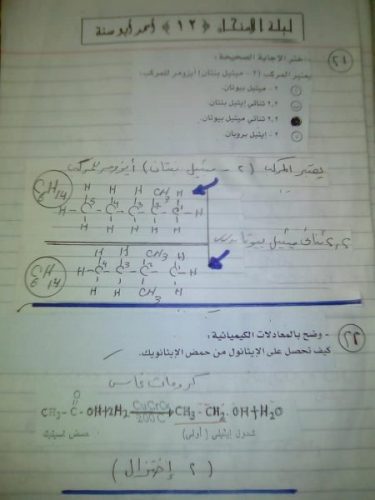 ليلة الامتحان ﴿١٢﴾ أحمد أبو سنة
٢١
اختر الإجابة الصحيحة:
يعتبر المركب (٢- ميثيل بنتان) أيزومر للمركب:
٢- ميثيل بيوتان.
٢,٢ ثنائي إيثيل بنتان.
٢,٢ ثنائي ميثيل بيوتان.
٢- إيثيل بروبان
يعتبر المركب (٢ - ميثيل بنتان) أيزومر للمركب
C6H14
H H H CH3 H
H-C5-C4-C3-C2-C1-H
H H H H H
٢,٢ ثنائي ميثيل بيوتان
C6H14
H H CH3 H
H-C4-C3-C2-C1-H
H H CH3 H
٢٢
- وضح بالمعادلات الكيميائية:
كيف تحصل على الإيثانول من حمض الإيثانويك.
كرومات نحاس
CH3-C-OH+2H2 CuCrO4 200C CH3-CH2-OH+H2O
O
حمض أسيتيك كحول إيثيلي (أولي)
(٢ إختزال)